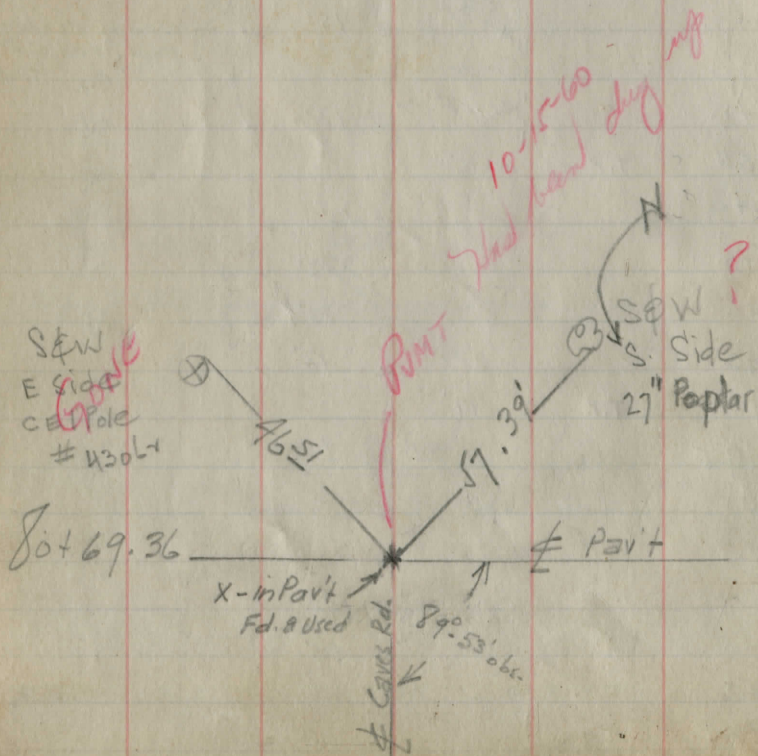 10-15-60
PVMT Had been dug up
N
?
S&W
S. Side
27" Poplar
S&W
E Side
CEI Pole
GONE
46 51
57.39'
80+69.36
℄ Pav't
X-in Pav't
Fd. & Used
89°-53' obs.
℄ Caves Rd.